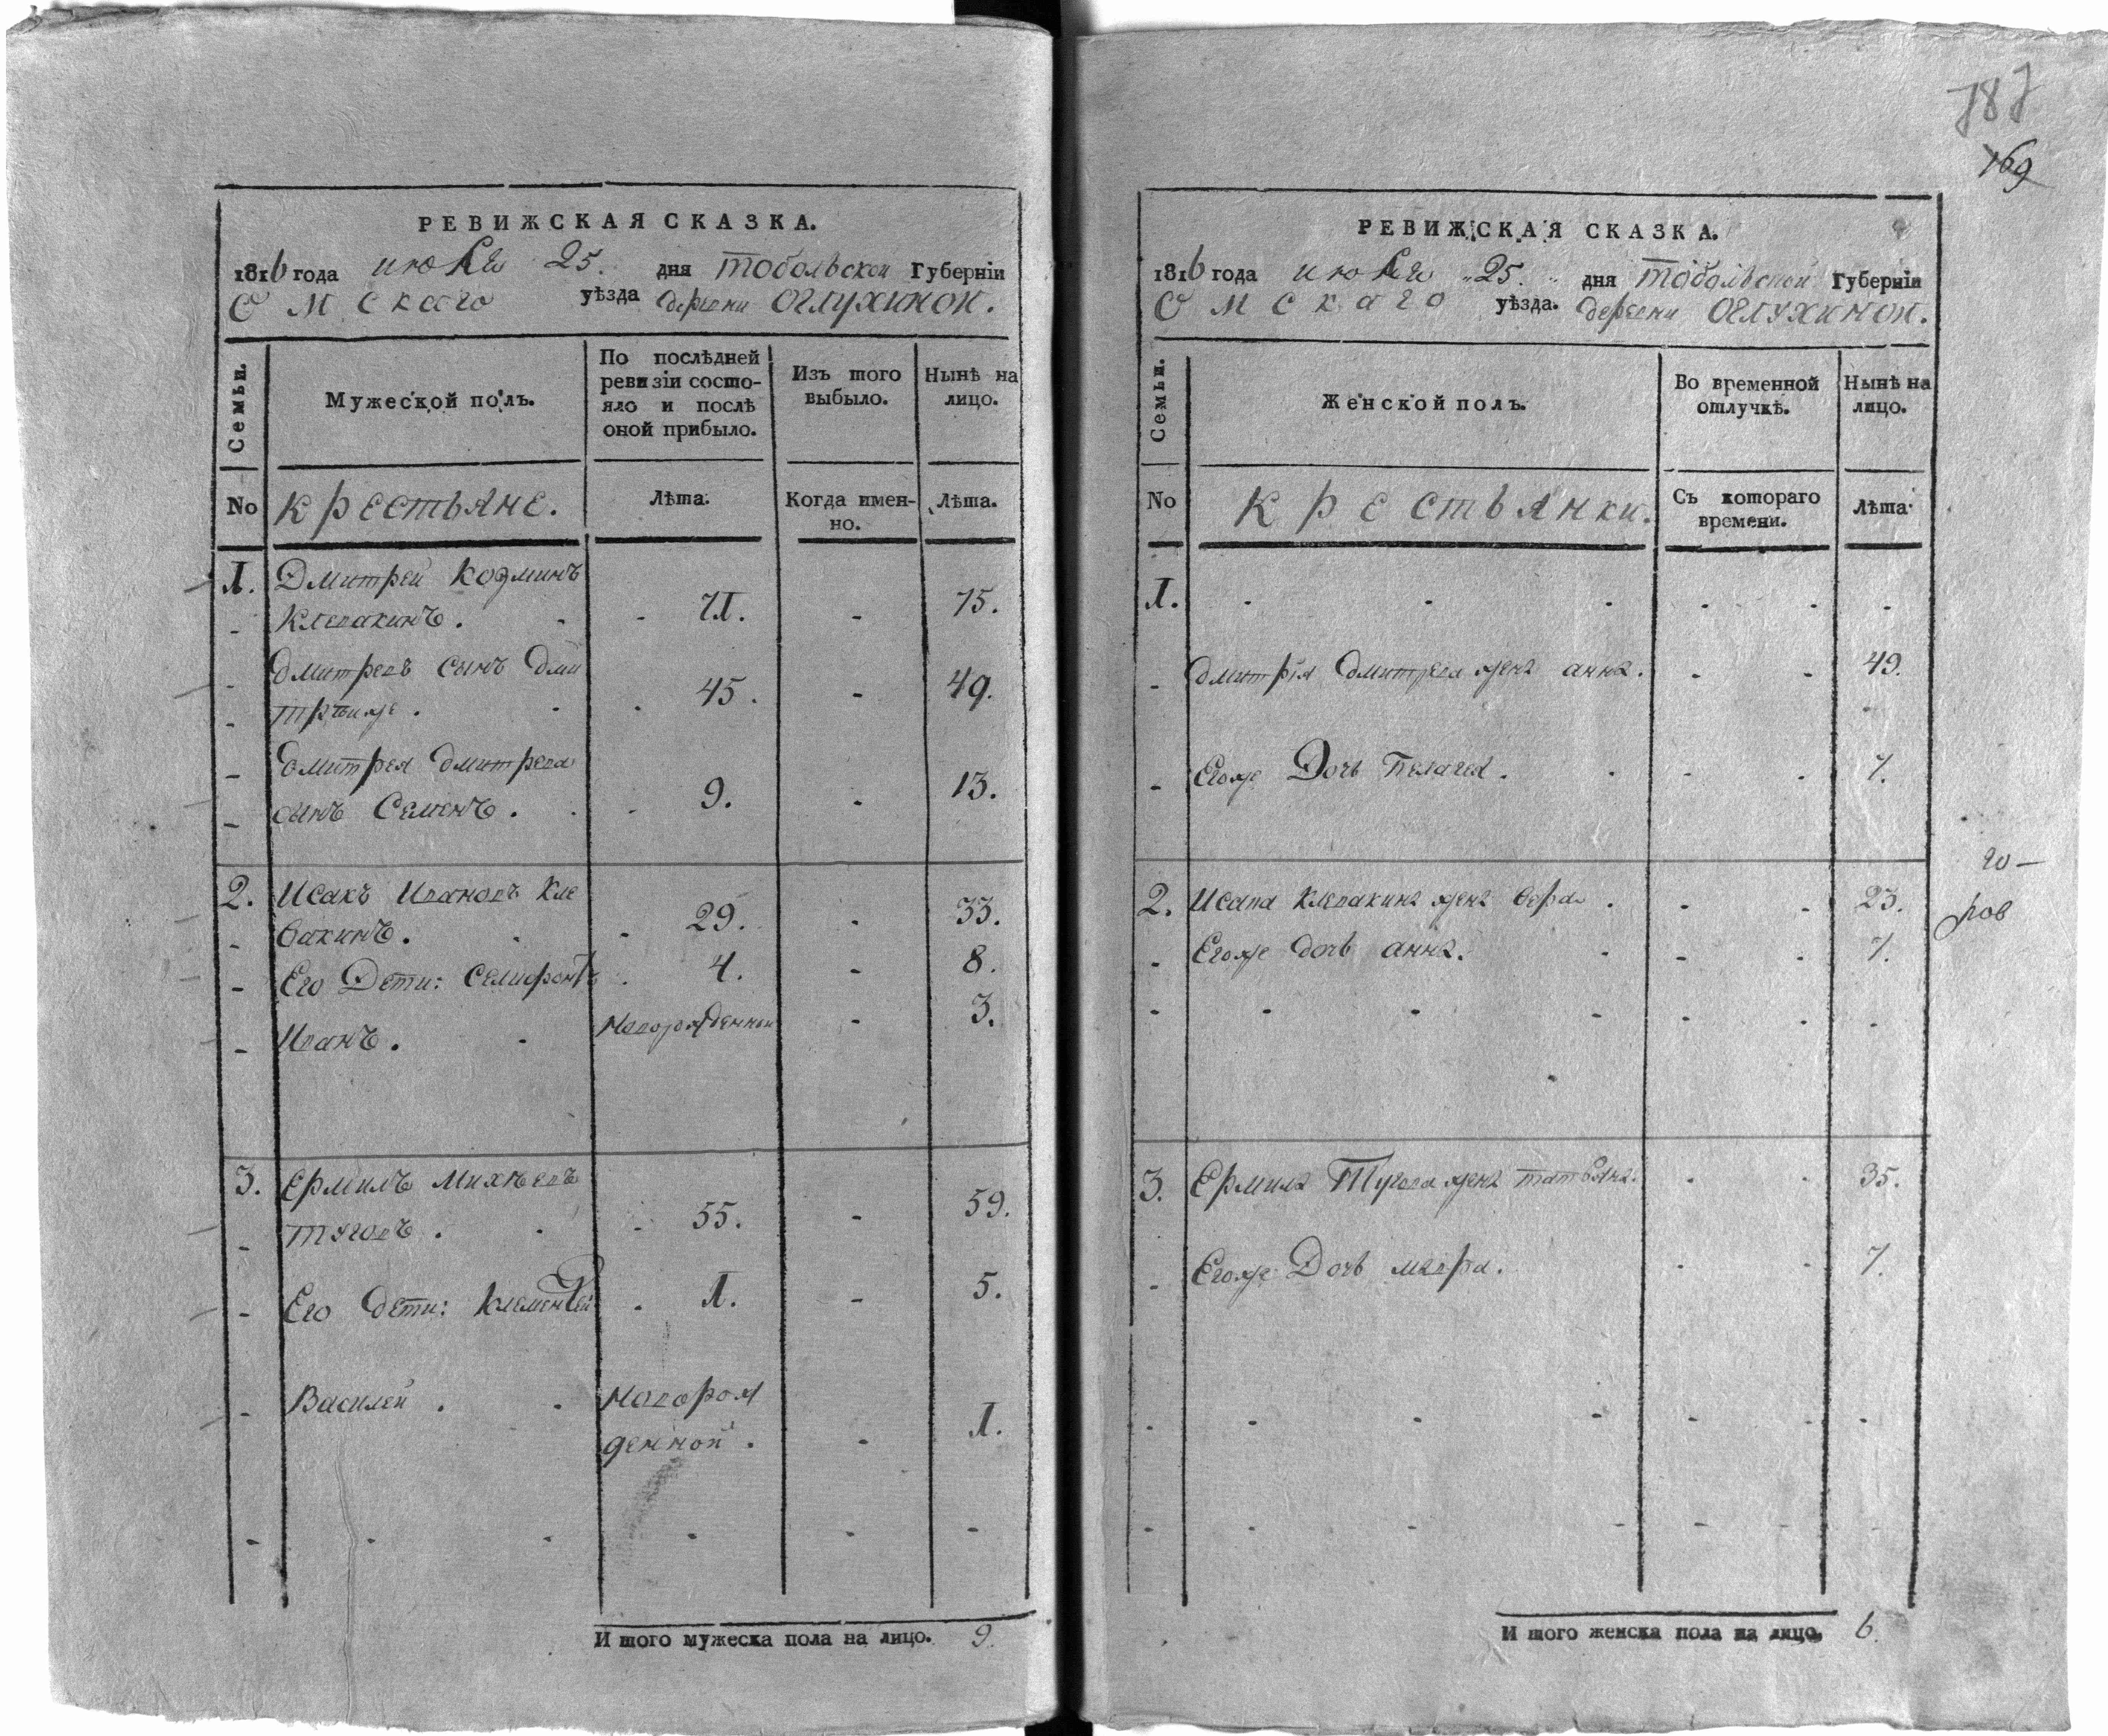 РЕВИЖСКАЯ СКАЗКА.
1816 года июля 25. дня тобольской Губерніи
Омскаго уѣзда деревни Оглухиной.
Семьи.
Мужеской полъ.
По послѣдней
ревизіи состо-
яло и послѣ
оной прибыло.
Изъ того
выбыло.
Нынѣ на
лицо.
No
крестьяне.
Лѣта.
Когда имен-
но.
Лѣта.
1. Дмитрей Козминъ
Клевакинъ. 71. 75.
Дмитревъ сынъ Дми
трѣиже. 45. 49.
Дмитрея Дмитрева
сынъ Семенъ. 9. 13.
2. Исакъ Ивановъ Кле
вакинъ. 29. 33.
Его Дети: Селифонтъ 4. 8.
Иванъ. Новорожденной 3.
3. Ермилъ Михѣевъ
Туговъ. 55. 59.
Его дети: Клементей 1. 5.
Василей. Новорож
денной. 1.
И того мужеска пола на лицо. 9.
787
169
РЕВИЖСКАЯ СКАЗКА.
1816 года июля 25. дня тобольской Губерніи
Омскаго уѣзда. деревни Оглухиной.
Семьи.
Женской полъ.
Во временной
отлучкѣ.
Нынѣ на
лицо.
No
крестьянки.
Съ котораго
времени.
Лѣта.
1.
Дмитрія Дмитрева жена анна. 49.
Егоже Дочь Пелагея. 7.
2. Исака Клевакина жена вера. 23.
Егоже дочь анна. 7.
3. Ермила Тугова жена татьяна. 35.
Егоже Дочь мавра. 7.
ров
И того женска пола на лицо. 6.